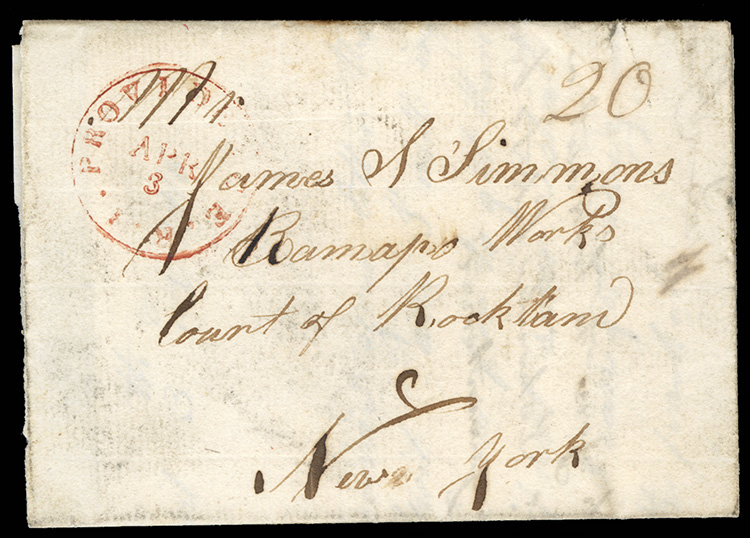 PROVIDE R.I.
APR
3
20
Mr
James S Simmons
Ramapo Works
Count of Rockland
New York